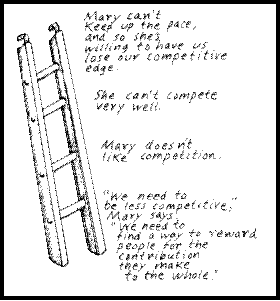 Mary can't
keep up the pace,
and so she's
willing to have us
lose our competitive
edge.
She can't compete
very well.
Mary doesn't
like competition.
"We need to
be less competitive,"
Mary says.
"We need to
find a way to reward
people for the
contribution
they make
to the whole."